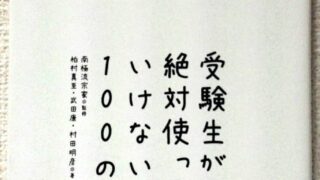 受験生が
絶対使っ
いけない
100の
南極流宗家◎監修
柏村真至・武田康・村田明彦◎著